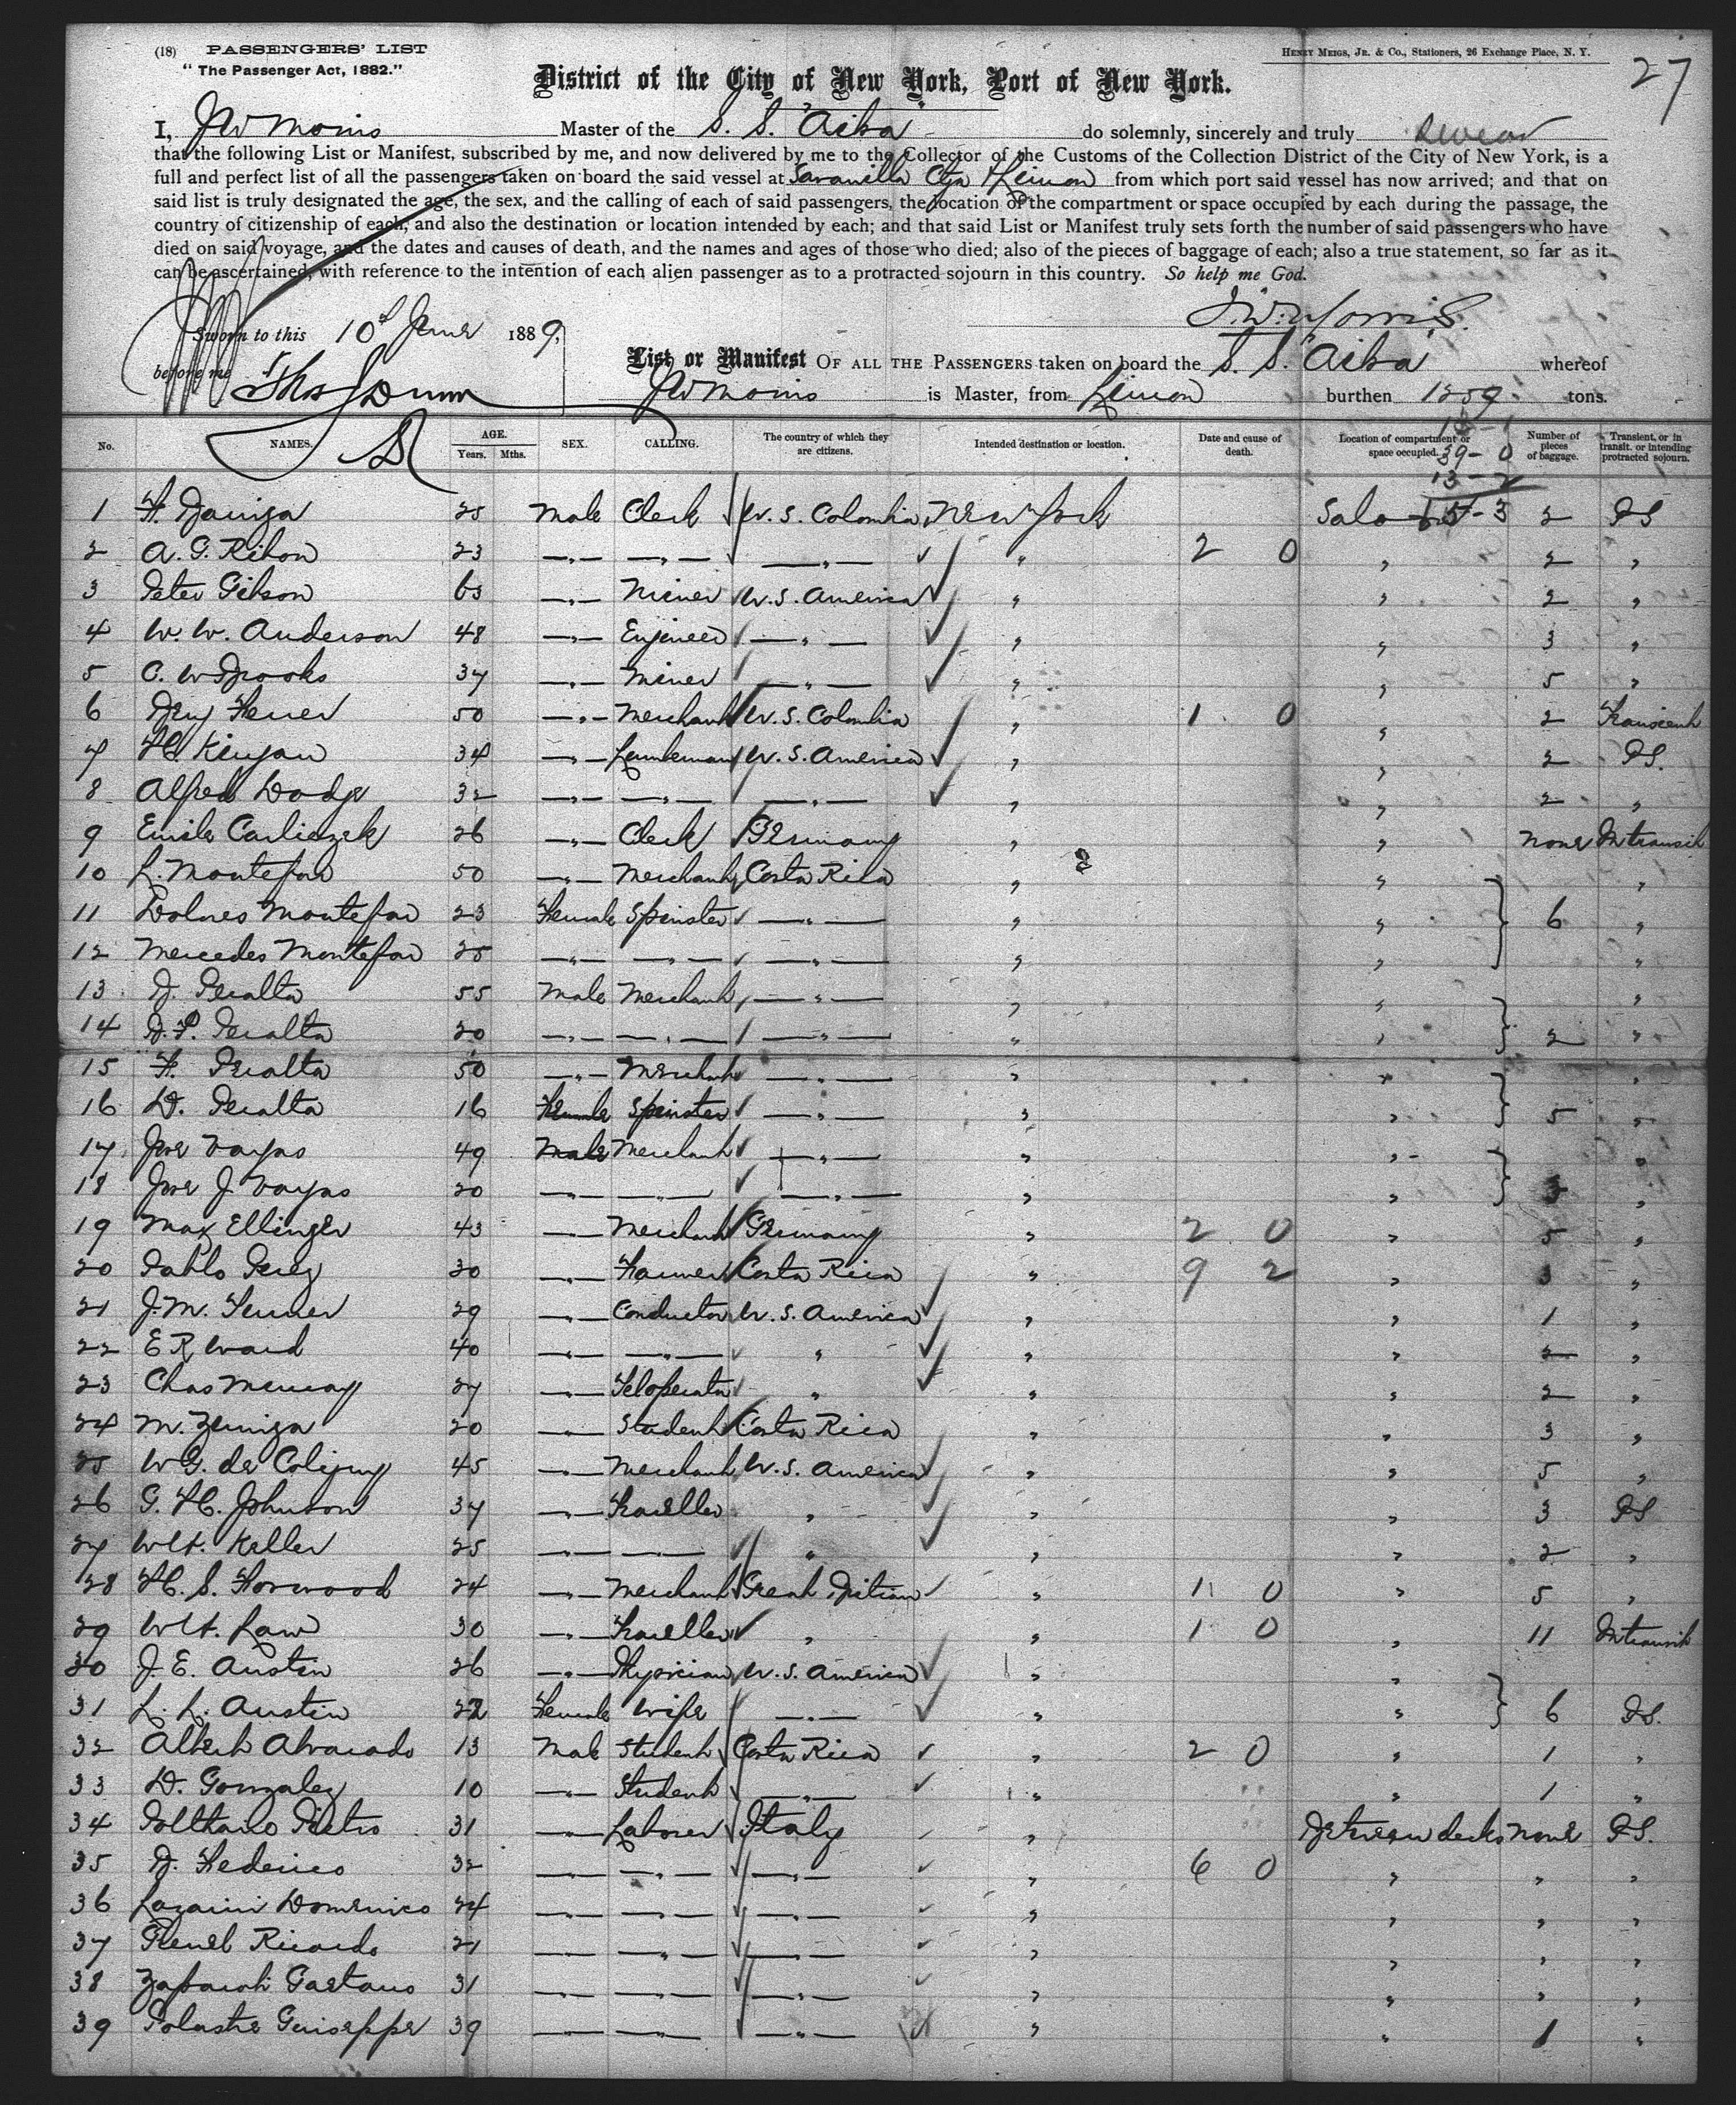 (18) PASSENGERS' LIST
"The Passenger Act, 1882."
HENRY MEIGS, JR. & CO., Stationers, 26 Exchange Place, N. Y.
27
District of the City of New York, Port of New York.
I, J W Morris Master of the S. S. "Ailsa" do solemnly, sincerely and truly swear
that the following List or Manifest, subscribed by me, and now delivered by me to the Collector of the Customs of the Collection District of the City of New York, is a
full and perfect list of all the passengers taken on board the said vessel at Savanilla Cga & Limon from which port said vessel has now arrived; and that on
said list is truly designated the age, the sex, and the calling of each of said passengers, the location of the compartment or space occupied by each during the passage, the
country of citizenship of each; and also the destination or location intended by each; and that said List or Manifest truly sets forth the number of said passengers who have
died on said voyage, and the dates and causes of death, and the names and ages of those who died; also of the pieces of baggage of each; also a true statement, so far as it
can be ascertained, with reference to the intention of each alien passenger as to a protracted sojourn in this country. So help me God.
J. W. Morris.
Sworn to this 10th June 1889,
before me Thos J Dunn
List or Manifest OF ALL THE PASSENGERS taken on board the S. S. "Ailsa" whereof
J W Morris is Master, from Limon burthen 1259 tons.
No. NAMES. AGE. Years. Mths. SEX. CALLING. The country of which they are citizens. Intended destination or location. Date and cause of death. Location of compartment or space occupied. Number of pieces of baggage. Transient, or in transit, or intending protracted sojourn.
39-0
13-2
15-3
1 25 Male Clerk U. S. Colombia New York Saloon 2 PS
2 A. G. Ribon 23 —"— —"— —"— " 2 0 " 2 "
3 Peter Gibson 63 —"— Miner U. S. America " " 2 "
4 W. W. Anderson 48 —"— Engineer —"— " " 3 "
5 C. W Brooks 37 —"— Miner —"— " " 5 "
6 Benj Ferrer 50 —"— Merchant U. S. Colombia " 1 0 " 2 Transient
7 H. Kinyan 34 —"— Lumberman U. S. America " " 2 PS.
8 Alfred Dodge 32 —"— —"— —"— " " 2 "
9 Emile Carliezek 26 —"— Clerk Germany " " none In transit
10 L. Montefar 50 —"— Merchant Costa Rica " " "
11 Dolores Montefar 23 Female Spinster —"— " " 6 "
12 Mercedes Montefar 25 —"— —"— —"— " " "
13 Peralta 55 Male Merchant —"— " " "
14 Peralta 20 —"— —"— —"— " " 2 "
15 F. Peralta 50 —"— Merchant —"— " " "
16 D. Peralta 16 Female Spinster —"— " " 5 "
17 Jose Vargas 49 Male Merchant —"— " " "
18 Jose J Vargas 20 —"— —"— —"— " " 3 "
19 Max Ellinger 43 —"— Merchant Germany " 2 0 " 5 "
20 Pablo Perez 30 —"— Farmer Costa Rica " 9 2 " 3 "
21 J. M. 29 —"— Conductor U. S. America " " 1 "
22 E R Ward 40 —"— —"— " " " 2 "
23 Chas Murray 27 —"— Teloperator " " " 2 "
24 M. Zuniga 20 —"— Student Costa Rica " " 3 "
25 W G. de Coligny 45 —"— Merchant U. S. America " " 5 "
26 G. H. Johnson 37 —"— Traveller " " " 3 PS
27 Wm. Keller 25 —"— —"— " " " 2 "
28 H. S. Horwood 24 —"— Merchant Great Britian " 1 0 " 5 "
29 Wm. Law 30 —"— Traveller " " 1 0 " 11 In transit
30 J. E. Austin 26 —"— Physician U. S. America " "
31 L. L. Austin 22 Female Wife —"— " " 6 PS.
32 Albert Alvarado 13 Male Student Costa Rica " 2 0 " 1 "
33 D. Gonzalez 10 —"— Student —"— " " 1 "
34 Pietro 31 —"— Laborer Italy " Between decks none PS.
35 Federico 32 —"— —"— —"— " 6 0 " " "
36 Lazarini Domenico 24 —"— —"— —"— " " " "
37 Ricardo 21 —"— —"— —"— " " " "
38 Gaetano 31 —"— —"— —"— " " " "
39 Guiseppe 39 —"— —"— —"— " " 1 "